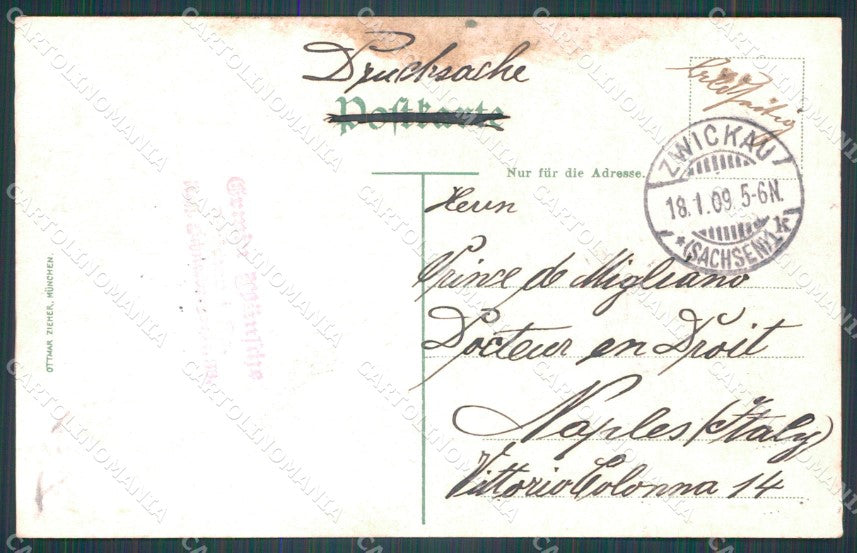 Drucksache
Postkarte
Nur für die Adresse.
ZWICKAU
18.1.09. 5-6N.
*(SACHSEN)1.k
Herrn
Prince de Migliano
Docteur en Droit
Naples (Italy)
Vittorio Colonna 14
OTTMAR ZIEHER, MÜNCHEN.
CARTOLINOMANIA